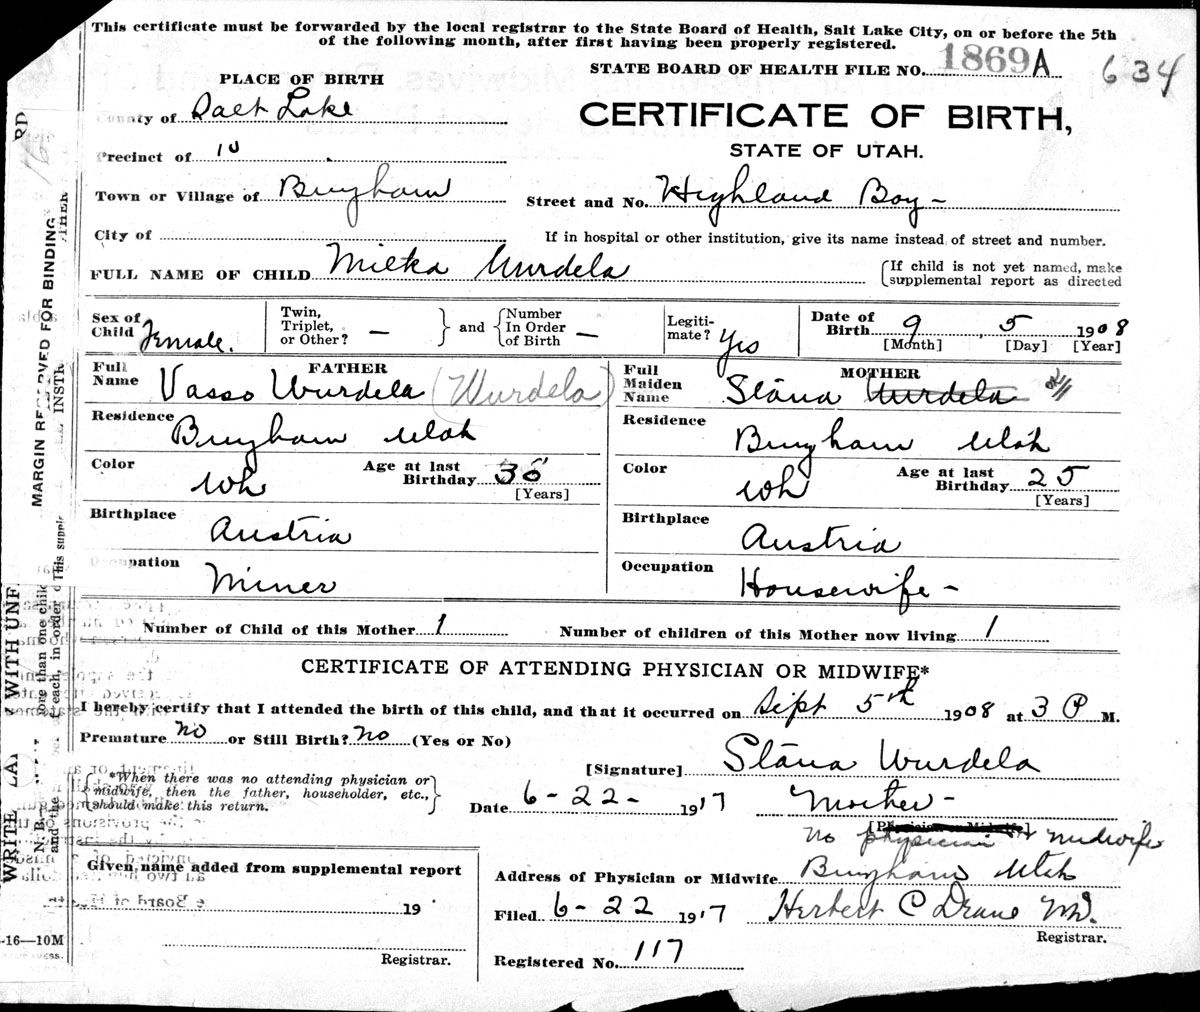 This certificate must be forwarded by the local registrar to the State Board of Health, Salt Lake City, on or before the 5th
of the following month, after first having been properly registered.
STATE BOARD OF HEALTH FILE NO. 1869A 634
PLACE OF BIRTH
CERTIFICATE OF BIRTH,
STATE OF UTAH.
County of Salt Lake
Precinct of 10
Town or Village of Bingham
Street and No. Highland Boy -
City of
If in hospital or other institution, give its name instead of street and number.
FULL NAME OF CHILD Milka Wurdela
If child is not yet named, make
supplemental report as directed
Sex of Child Female.
Twin, Triplet, or Other? —
and
Number In Order of Birth —
Legitimate? Yes
Date of Birth 9, 5 1908
[Month] [Day] [Year]
FATHER
Full Name Vasso Wurdela (Wurdela)
MOTHER
Full Maiden Name Stana Wurdela
Residence Bingham Utah
Residence Bingham Utah
Color wh
Age at last Birthday 36 [Years]
Color wh
Age at last Birthday 25 [Years]
Birthplace Austria
Birthplace Austria
Occupation Miner
Occupation Housewife -
Number of Child of this Mother 1
Number of children of this Mother now living 1
CERTIFICATE OF ATTENDING PHYSICIAN OR MIDWIFE*
I hereby certify that I attended the birth of this child, and that it occurred on Sept 5th 1908 at 3 P M.
Premature No or Still Birth? No (Yes or No)
[Signature] Stana Wurdela
*When there was no attending physician or
midwife, then the father, householder, etc.,
should make this return.
Date 6-22- 1917
Mother -
[Physician or Midwife]
No physician + midwife
Given name added from supplemental report
19
Registrar.
Address of Physician or Midwife Bingham Utah
Filed 6-22 1917 Herbert C Drane MD.
Registrar.
Registered No. 117
MARGIN RESERVED FOR BINDING
WRITE PLA
WITH UNF
N. B.
ore than one child
and the
each, in order
This supple
INSTR
16—10M